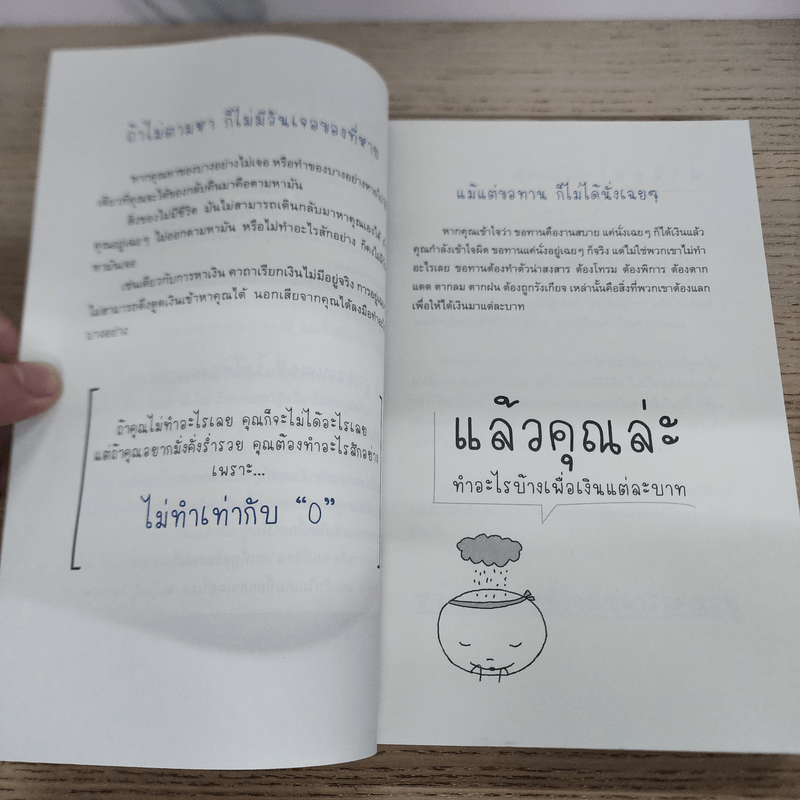 ถ้าไม่ตามหา ก็ไม่มีวันเจอของที่หาย
หากคุณหาของบางอย่างไม่เจอ หรือทำของบางอย่างหายไป
เดียวที่คุณจะได้ของกลับคืนมาคือตามหามัน
สิ่งของไม่มีชีวิต มันไม่สามารถเดินกลับมาหาคุณเองได้
คุณอยู่เฉยๆ ไม่ออกตามหามัน หรือไม่ทำอะไรสักอย่าง ก็คง
หามันเจอ
เช่นเดียวกับการหาเงิน คาถาเรียกเงินไม่มีอยู่จริง การอยู่เฉย
ไม่สามารถดึงดูดเงินเข้าหาคุณได้ นอกเสียจากคุณได้ลงมือทำ
บางอย่าง
ถ้าคุณไม่ทำอะไรเลย คุณก็จะไม่ได้อะไรเลย
แต่ถ้าคุณอยากมั่งคั่งร่ำรวย คุณต้องทำอะไรสักอย่าง
เพราะ...
ไม่ทำเท่ากับ “0”
แม้แต่ขอทาน ก็ไม่ได้นั่งเฉยๆ
หากคุณเข้าใจว่า ขอทานคืองานสบาย แค่นั่งเฉยๆ ก็ได้เงินแล้ว
คุณกำลังเข้าใจผิด ขอทานแค่นั่งอยู่เฉยๆ ก็จริง แต่ไม่ใช่พวกเขาไม่ทำ
อะไรเลย ขอทานต้องทำตัวน่าสงสาร ต้องโทรม ต้องพิการ ต้องตาก
แดด ตากลม ตากฝน ต้องถูกรังเกียจ เหล่านั้นคือสิ่งที่พวกเขาต้องแลก
เพื่อให้ได้เงินมาแต่ละบาท
แล้วคุณล่ะ
ทำอะไรบ้างเพื่อเงินแต่ละบาท